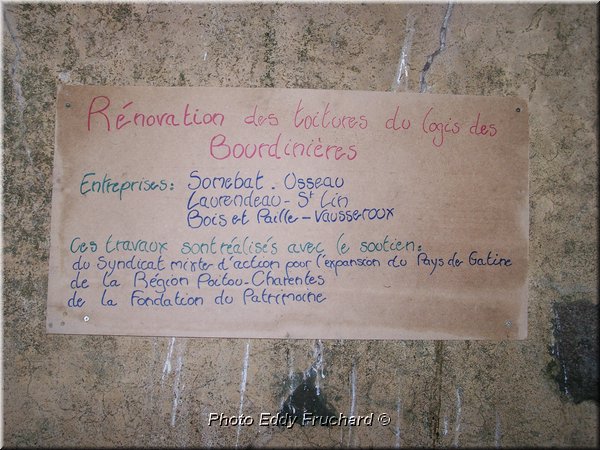 Rénovation des toitures du logis des
Bourdinières
Entreprises: Somebat. Osseau
Laurendeau - St Lin
Bois et Paille - Vausseroux
Ces travaux sont réalisés avec le soutien:
du Syndicat mixte d'action pour l'expansion du Pays de Gatine
de la Région Poitou-Charentes
de la Fondation du Patrimoine
Photo Eddy Fruchard ©